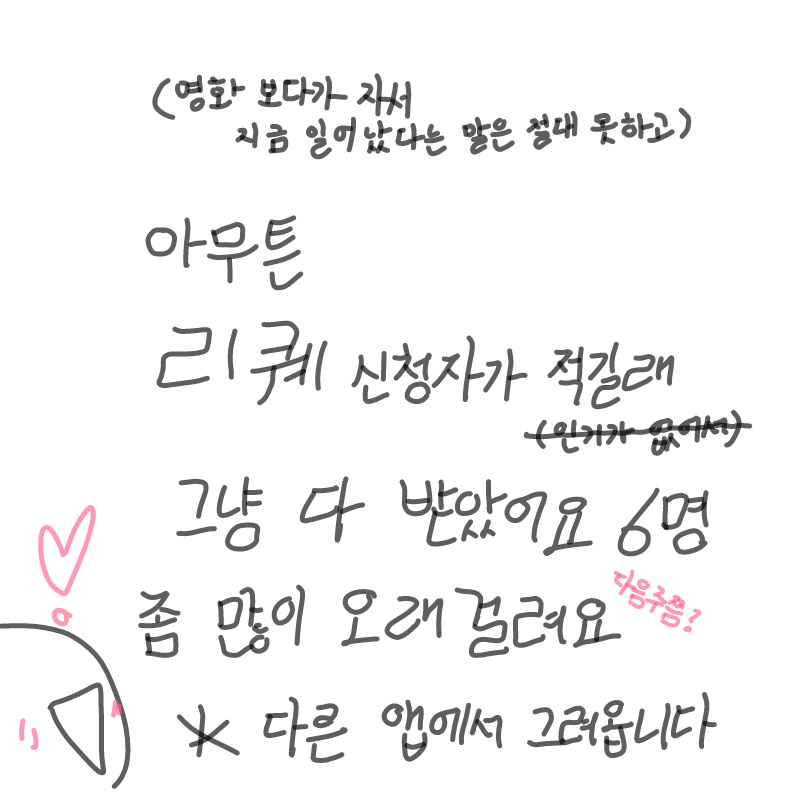 (영화 보다가 자서
지금 일어났다는 말은 절대 못하고)
아무튼
리퀘 신청자가 적길래
(인기가 없어서)
그냥 다 받았어요 6명
좀 많이 오래걸려요
다음주쯤?
* 다른 앱에서 그려옵니다